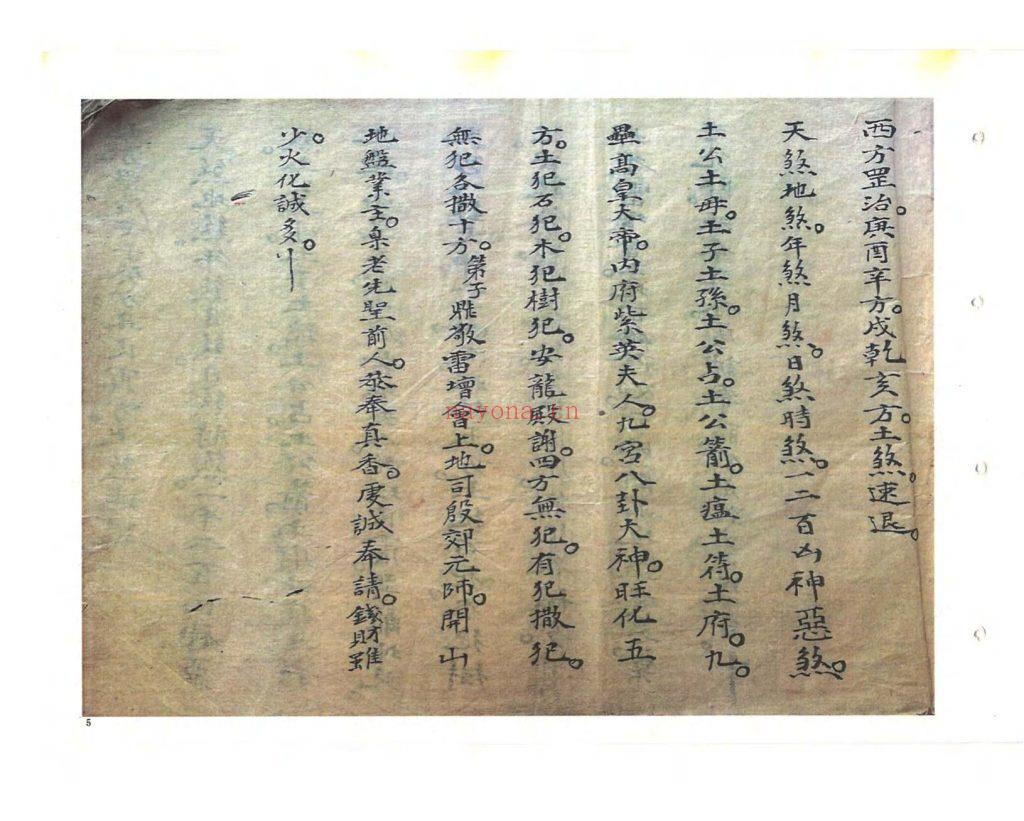 西方罡治。庚酉辛方。戌乾亥方。土煞。速退。
天煞地煞。年煞月煞。日煞時煞。一二百凶神惡煞。
土公土母。土子土孫。土公占。土公箭。土瘟土符。土府。九
壘高皇大帝。内府紫英夫人。九宮八卦大神。旺化五
方。土犯石犯。木犯樹犯。安龍殿謝。四方無犯。有犯撒犯。
無犯各撒十方。第子雕敬雷壇會上。地司殷郊元帅。開山
地盤業主。梟老先聖前人。恭奉真香。虔誠奉請。錢財雖
少。火化誠多。
nayona.cn
5